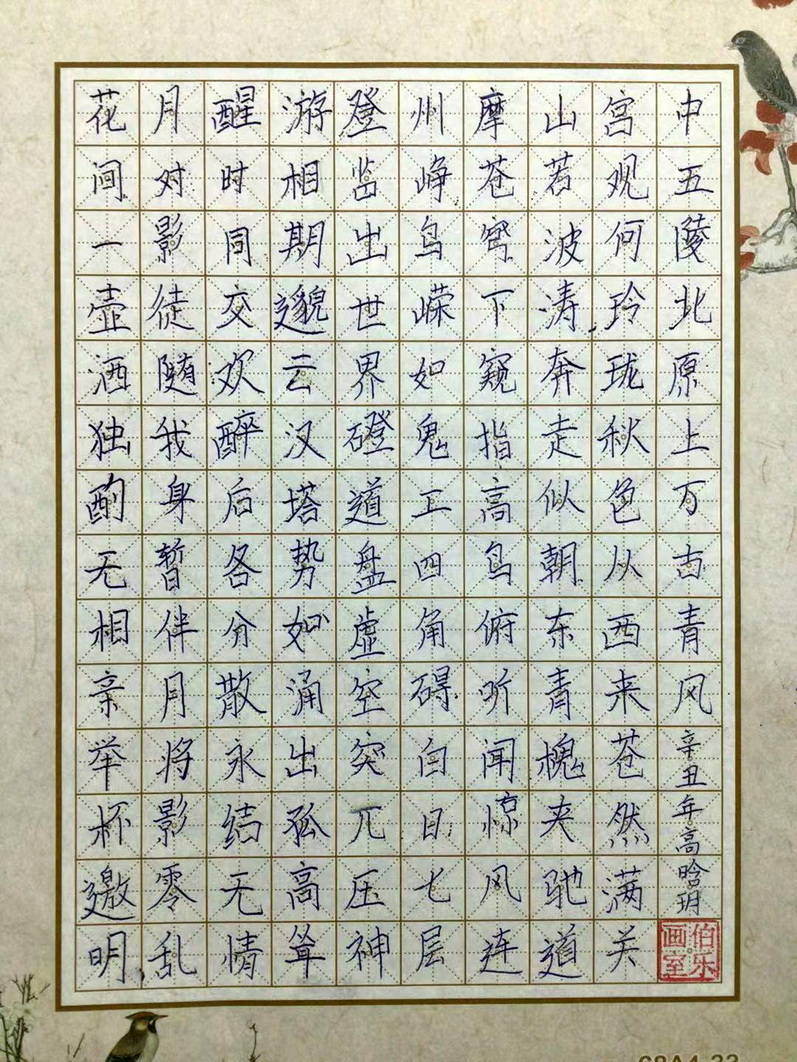 花间一壶洒独酌无相亲举杯邀明
月对影徒随我身暂伴月将影零乱
醒时同交欢醉后各分散永结无情
游相期邈云汉塔势如涌出孤高耸
登监出世界磴道盘虚空突兀压神
州峥鸟嵘如鬼工四角碍白日七层
摩苍穹下窥指高鸟俯听闻惊风连
山若波涛奔走似朝东青槐夹驰道
宫观何玲珑秋色从西来苍然满关
中五陵北原上万古青风辛丑年高晗玥
伯乐画室